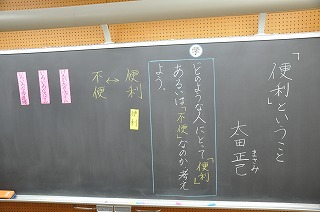 「便利」ということ
太田正己
まさみ
学
どのような人にとって「便利」
あるいは「不便」なのか考え
よう。
便利
↔
不便
便利